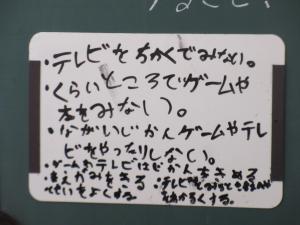 ・テレビをちかくでみない。
・くらいところでゲームや
本をみない。
・ながいじかんゲームやテレ
ビをやったりしない。
・ゲームやテレビはじかんをきめる
・まえがみをきる
・テレビを
せいをよくする
をあかるくする。